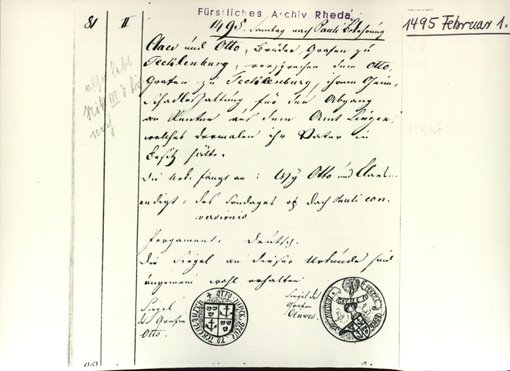 Fürstliches Archiv Rheda
81 II
1495. Sonntag nach Pauli Bekehrung
1495 Februar 1.
Claes und Otto, Brüder, Grafen zu
Tecklenburg, versprechen dem Otto,
Grafen zu Tecklenburg, ihrem Oheim,
Schadloshaltung für den Abgang
an Renten aus dem Amt Lingen,
welches dermalen ihr Vater in
Besitz hätte.
Die Urk. fängt an: Wy Otto und Claes...
endigt: des Sondages op Dach Pauli con-
versionis
Pergament. Deutsch.
Die Siegel an dieser Urkunde sind
ungemein wohl erhalten
Siegel
des Grafen
Otto.
Siegel des
Grafen
Clawes.